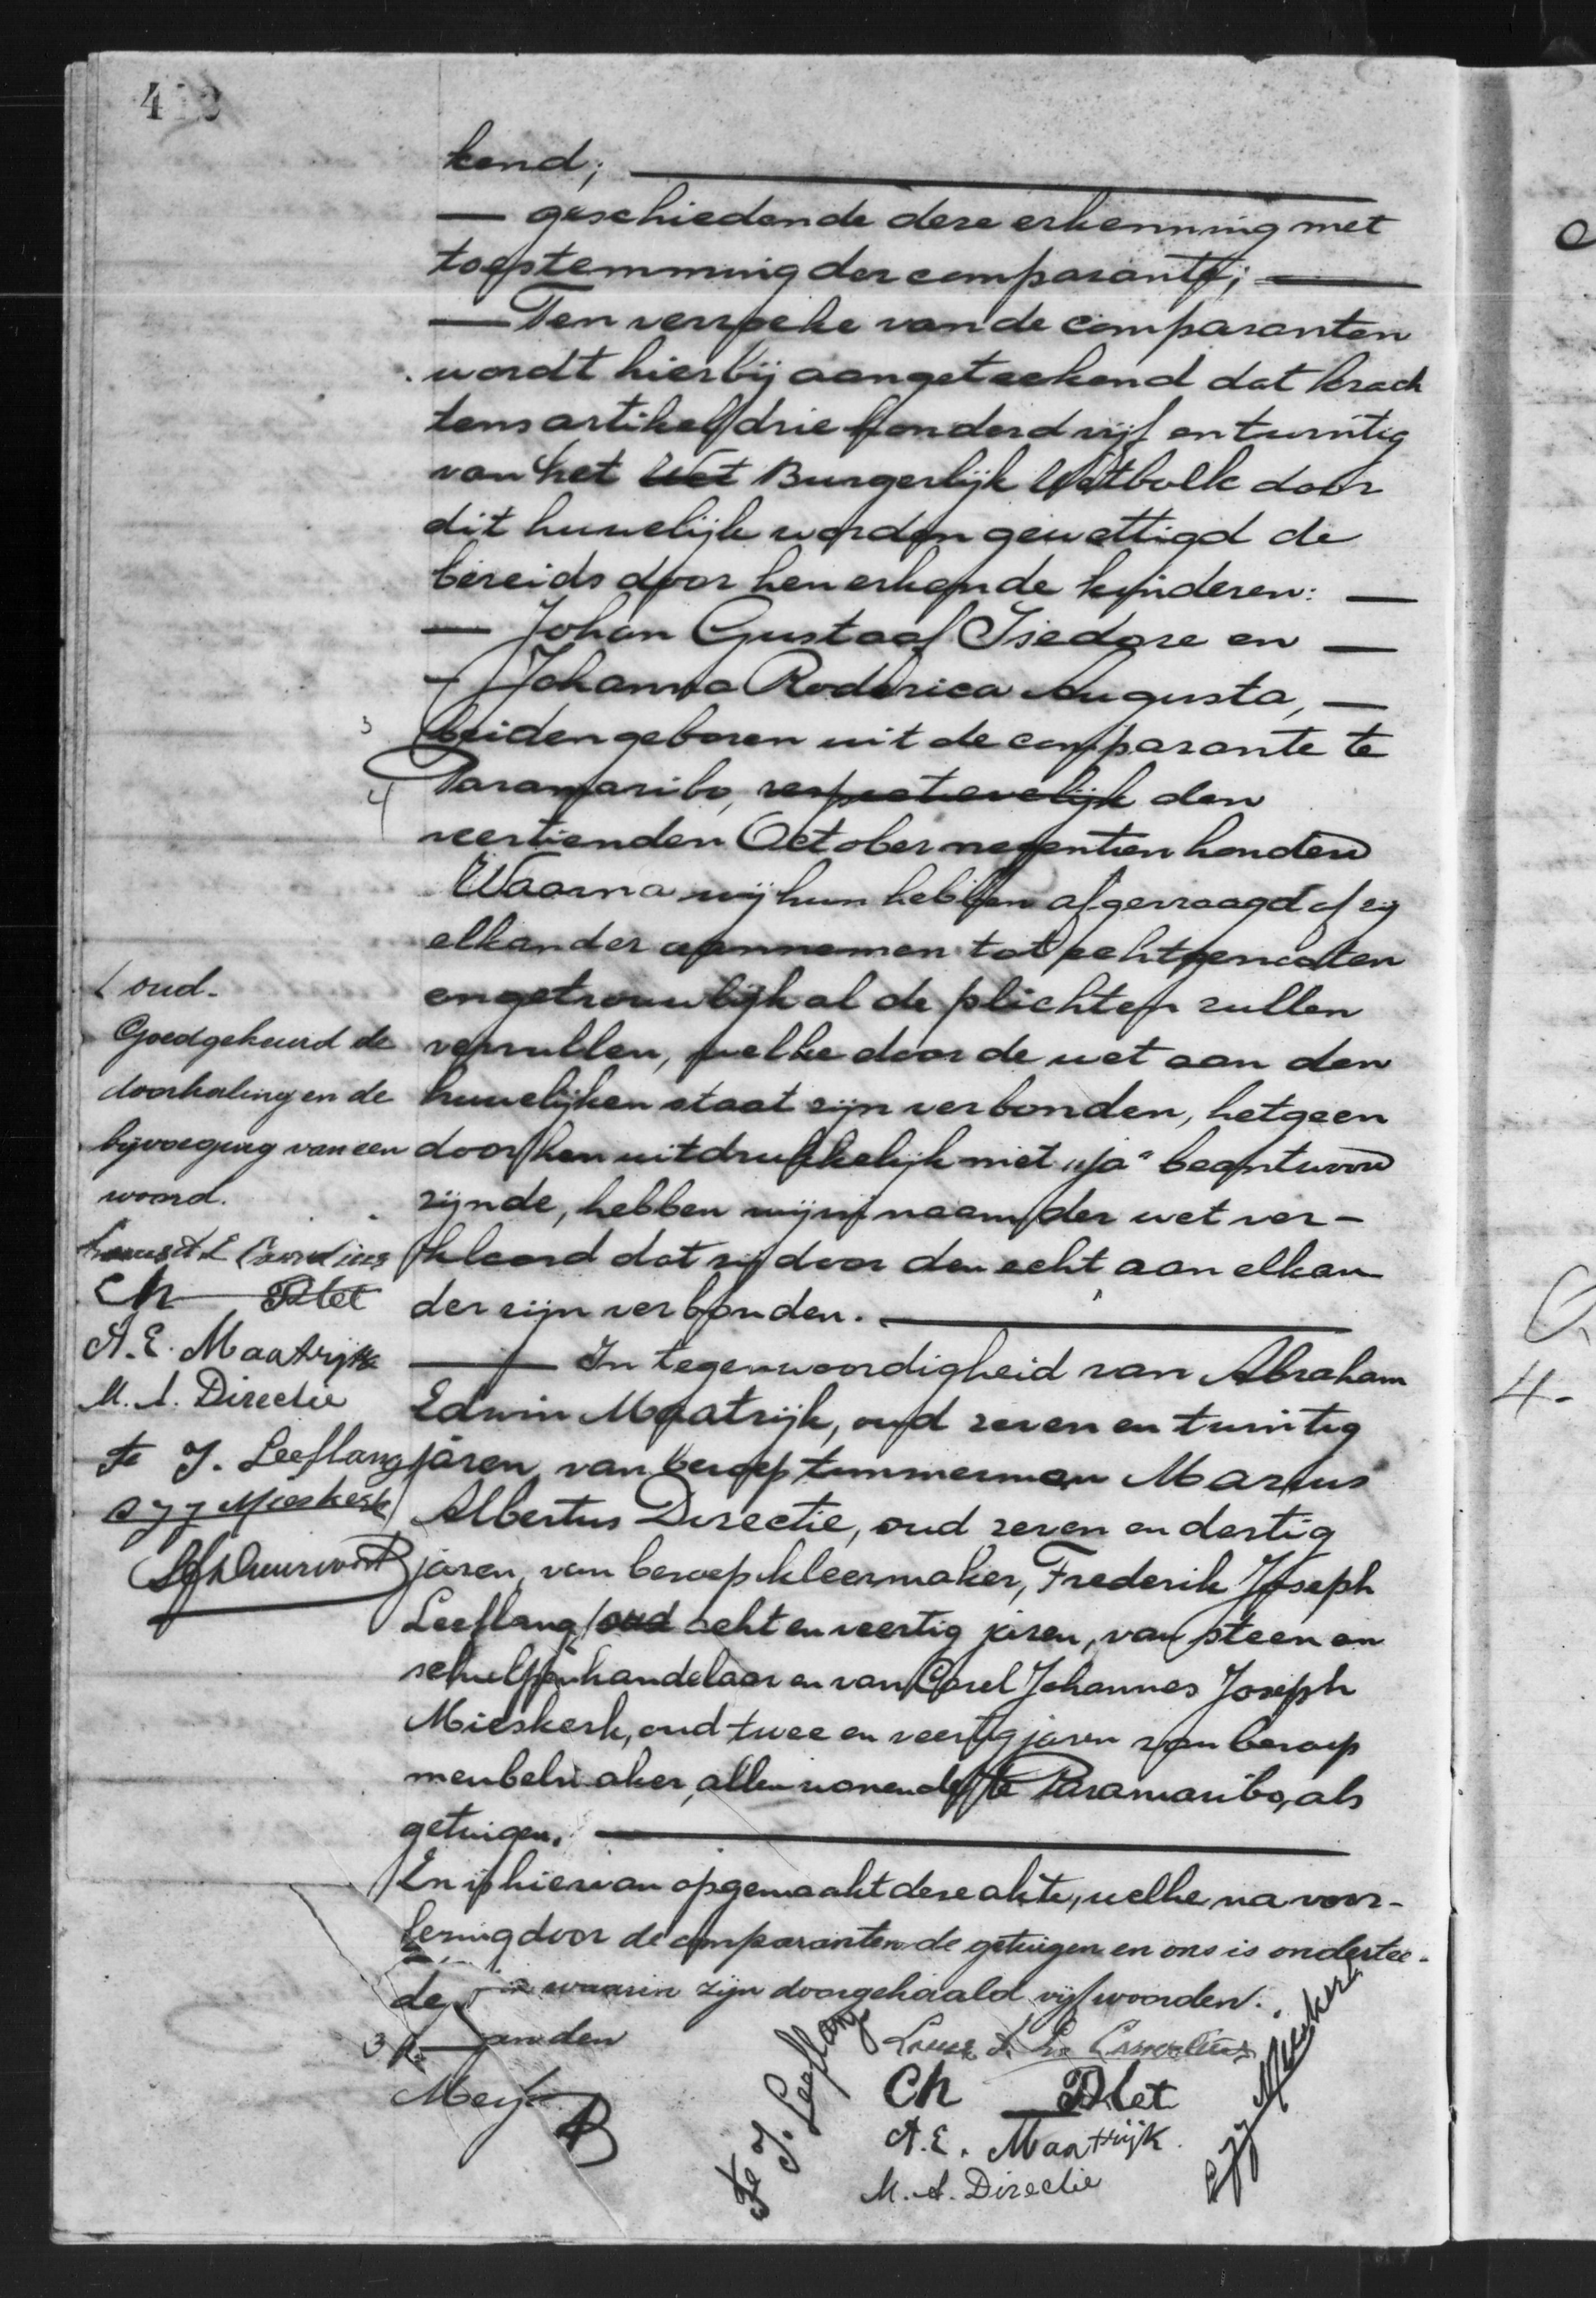 kend;
— geschiedende deze erkenning met
toestemming der comparante;
— Ten verzoeke van de comparanten
wordt hierbij aangeteekend dat krach
tens artikel drie honderd vijf en twintig
van het Wet Burgerlijk Wetboek door
dit huwelijk worden gewettigd de
bereids door hen erkende kinderen: —
— Johan Gustaaf Isedore en —
— Johanna Roderica Augusta, —
beiden geboren uit de comparante te
Paramaribo, respectievelijk den
veertienden October negentien honderd
Waarna wij hun hebben afgevraagd of zij
elkander aannemen tot echtgenooten
en getrouwelijk al de plichten zullen
vervullen, welke door de wet aan den
huwelijken staat zijn verbonden, hetgeen
door hen uitdrukkelijk met "ja" beantwoord
zijnde, hebben wij in naam der wet ver-
klaard dat zij door den echt aan elkan
der zijn verbonden.
— In tegenwoordigheid van Abraham
Edwin Maatrijk, oud zeven en twintig
jaren, van beroep timmerman Marius
Albertus Directie, oud zeven en dertig
jaren, van beroep kleermaker, Frederik Joseph
Leeflang / oud acht en veertig jaren, van steen en
schulpenhandelaar en van Carel Johannes Joseph
Mieskerk, oud twee en veertig jaren van beroep
meubelmaker, allen wonende te Paramaribo, als
getuigen.
En is hiervan opgemaakt deze akte, welke na voor-
lezing door de comparanten de getuigen en ons is ondertee-
waarin zijn doorgehaald vijf woorden.
Ch Plet
A. E. Maatrijk
M. A. Directie
Fe J. Leeflang
CJJ Mieskerk
/ oud.
Goedgekeurd de
doorhaling en de
bijvoeging van een
woord.
Ch Plet
A. E. Maatrijk
M. A. Directie
Fe J. Leeflang
CJJ Mieskerk